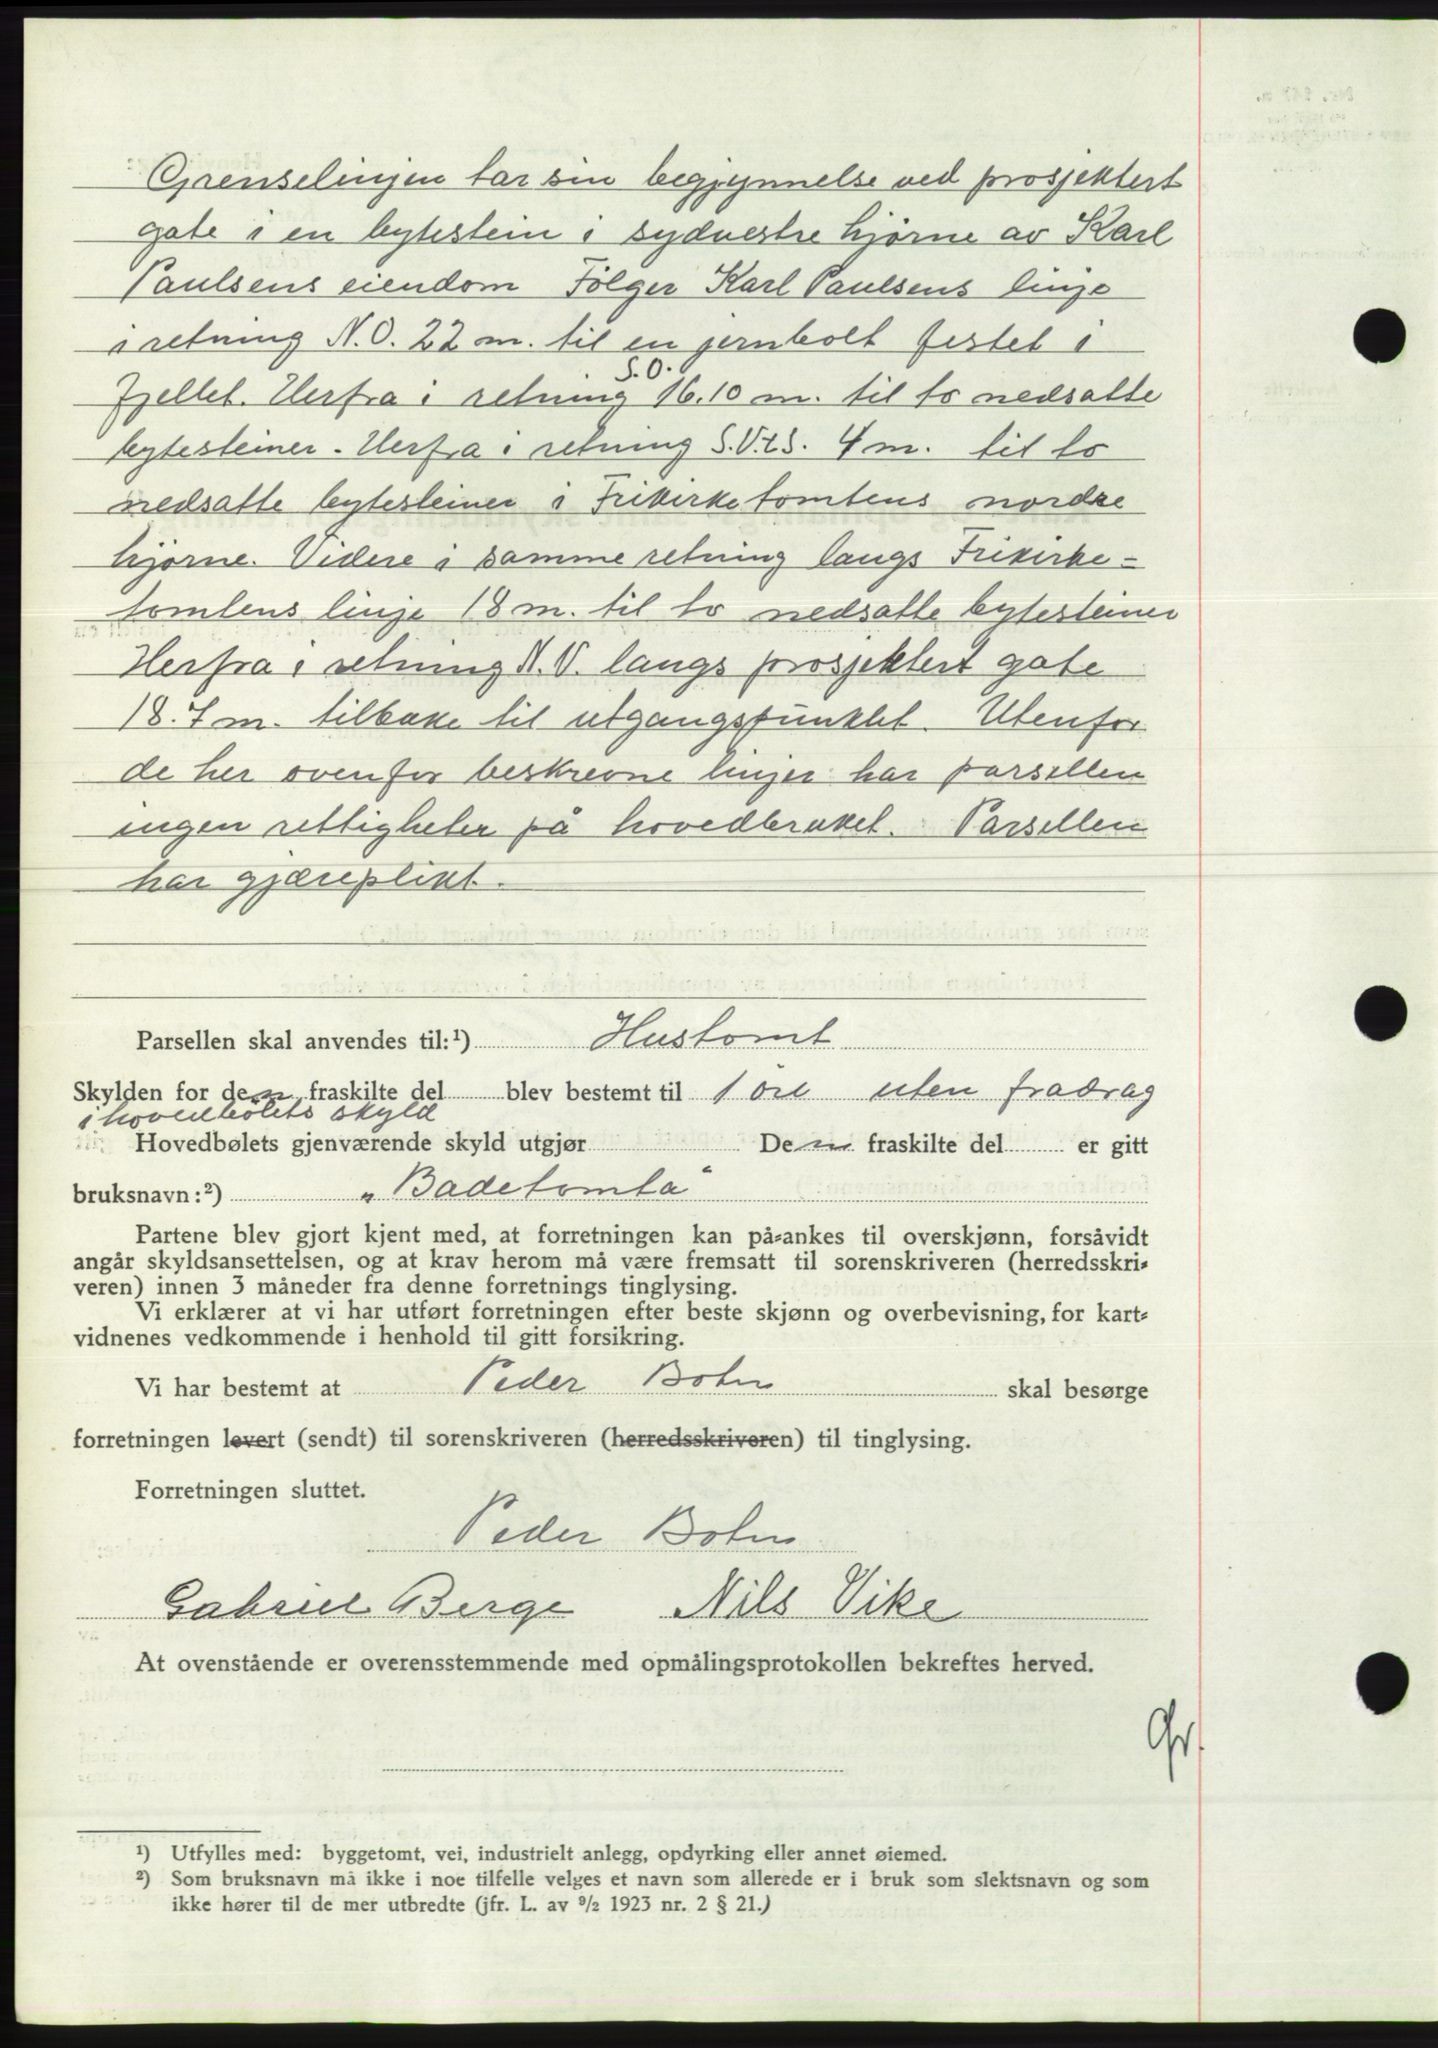 Grenselinjen tar sin begjynnelse ved prosjektert
gate i en bytestein i sydvestre hjørne av Karl
Paulsens eiendom Følger Karl Paulsens linje
i retning N.O. 22 m. til en jernbolt festet i
S.O.
fjellet. Herfra i retning 16.10 m. til to nedsatte
bytesteiner. Herfra i retning S.V.t.S. 4 m. til to
nedsatte bytesteiner i Frikirketomtens nordre
hjørne. Videre i samme retning langs Frikirke=
tomtens linje 18 m. til to nedsatte bytesteiner
Herfra i retning N.V. langs prosjektert gate
18.7 m. tilbake til utgangspunktet. Utenfor
de her ovenfor beskrevne linjer har parsellen
ingen rettigheter på hovedbruket. Parsellen
har gjæreplikt.
Parsellen skal anvendes til:¹) Hustomt
Skylden for den fraskilte del blev bestemt til 1 øre uten fradrag
i hovedbølets skyld
Hovedbølets gjenværende skyld utgjør De n fraskilte del er gitt
bruksnavn:²) „Badetomta"
Partene blev gjort kjent med, at forretningen kan på-ankes til overskjønn, forsåvidt
angår skyldsansettelsen, og at krav herom må være fremsatt til sorenskriveren (herredsskri-
veren) innen 3 måneder fra denne forretnings tinglysing.
Vi erklærer at vi har utført forretningen efter beste skjønn og overbevisning, for kart-
vidnenes vedkommende i henhold til gitt forsikring.
Vi har bestemt at Peder Bohn skal besørge
forretningen levert (sendt) til sorenskriveren (herredsskriveren) til tinglysing.
Forretningen sluttet.
Peder Bohn
Gabriel Berge Nils Vike
At ovenstående er overensstemmende med opmålingsprotokollen bekreftes herved.
¹) Utfylles med: byggetomt, vei, industrielt anlegg, opdyrking eller annet øiemed.
²) Som bruksnavn må ikke i noe tilfelle velges et navn som allerede er i bruk som slektsnavn og som
ikke hører til de mer utbredte (jfr. L. av ⁹/₂ 1923 nr. 2 § 21.)